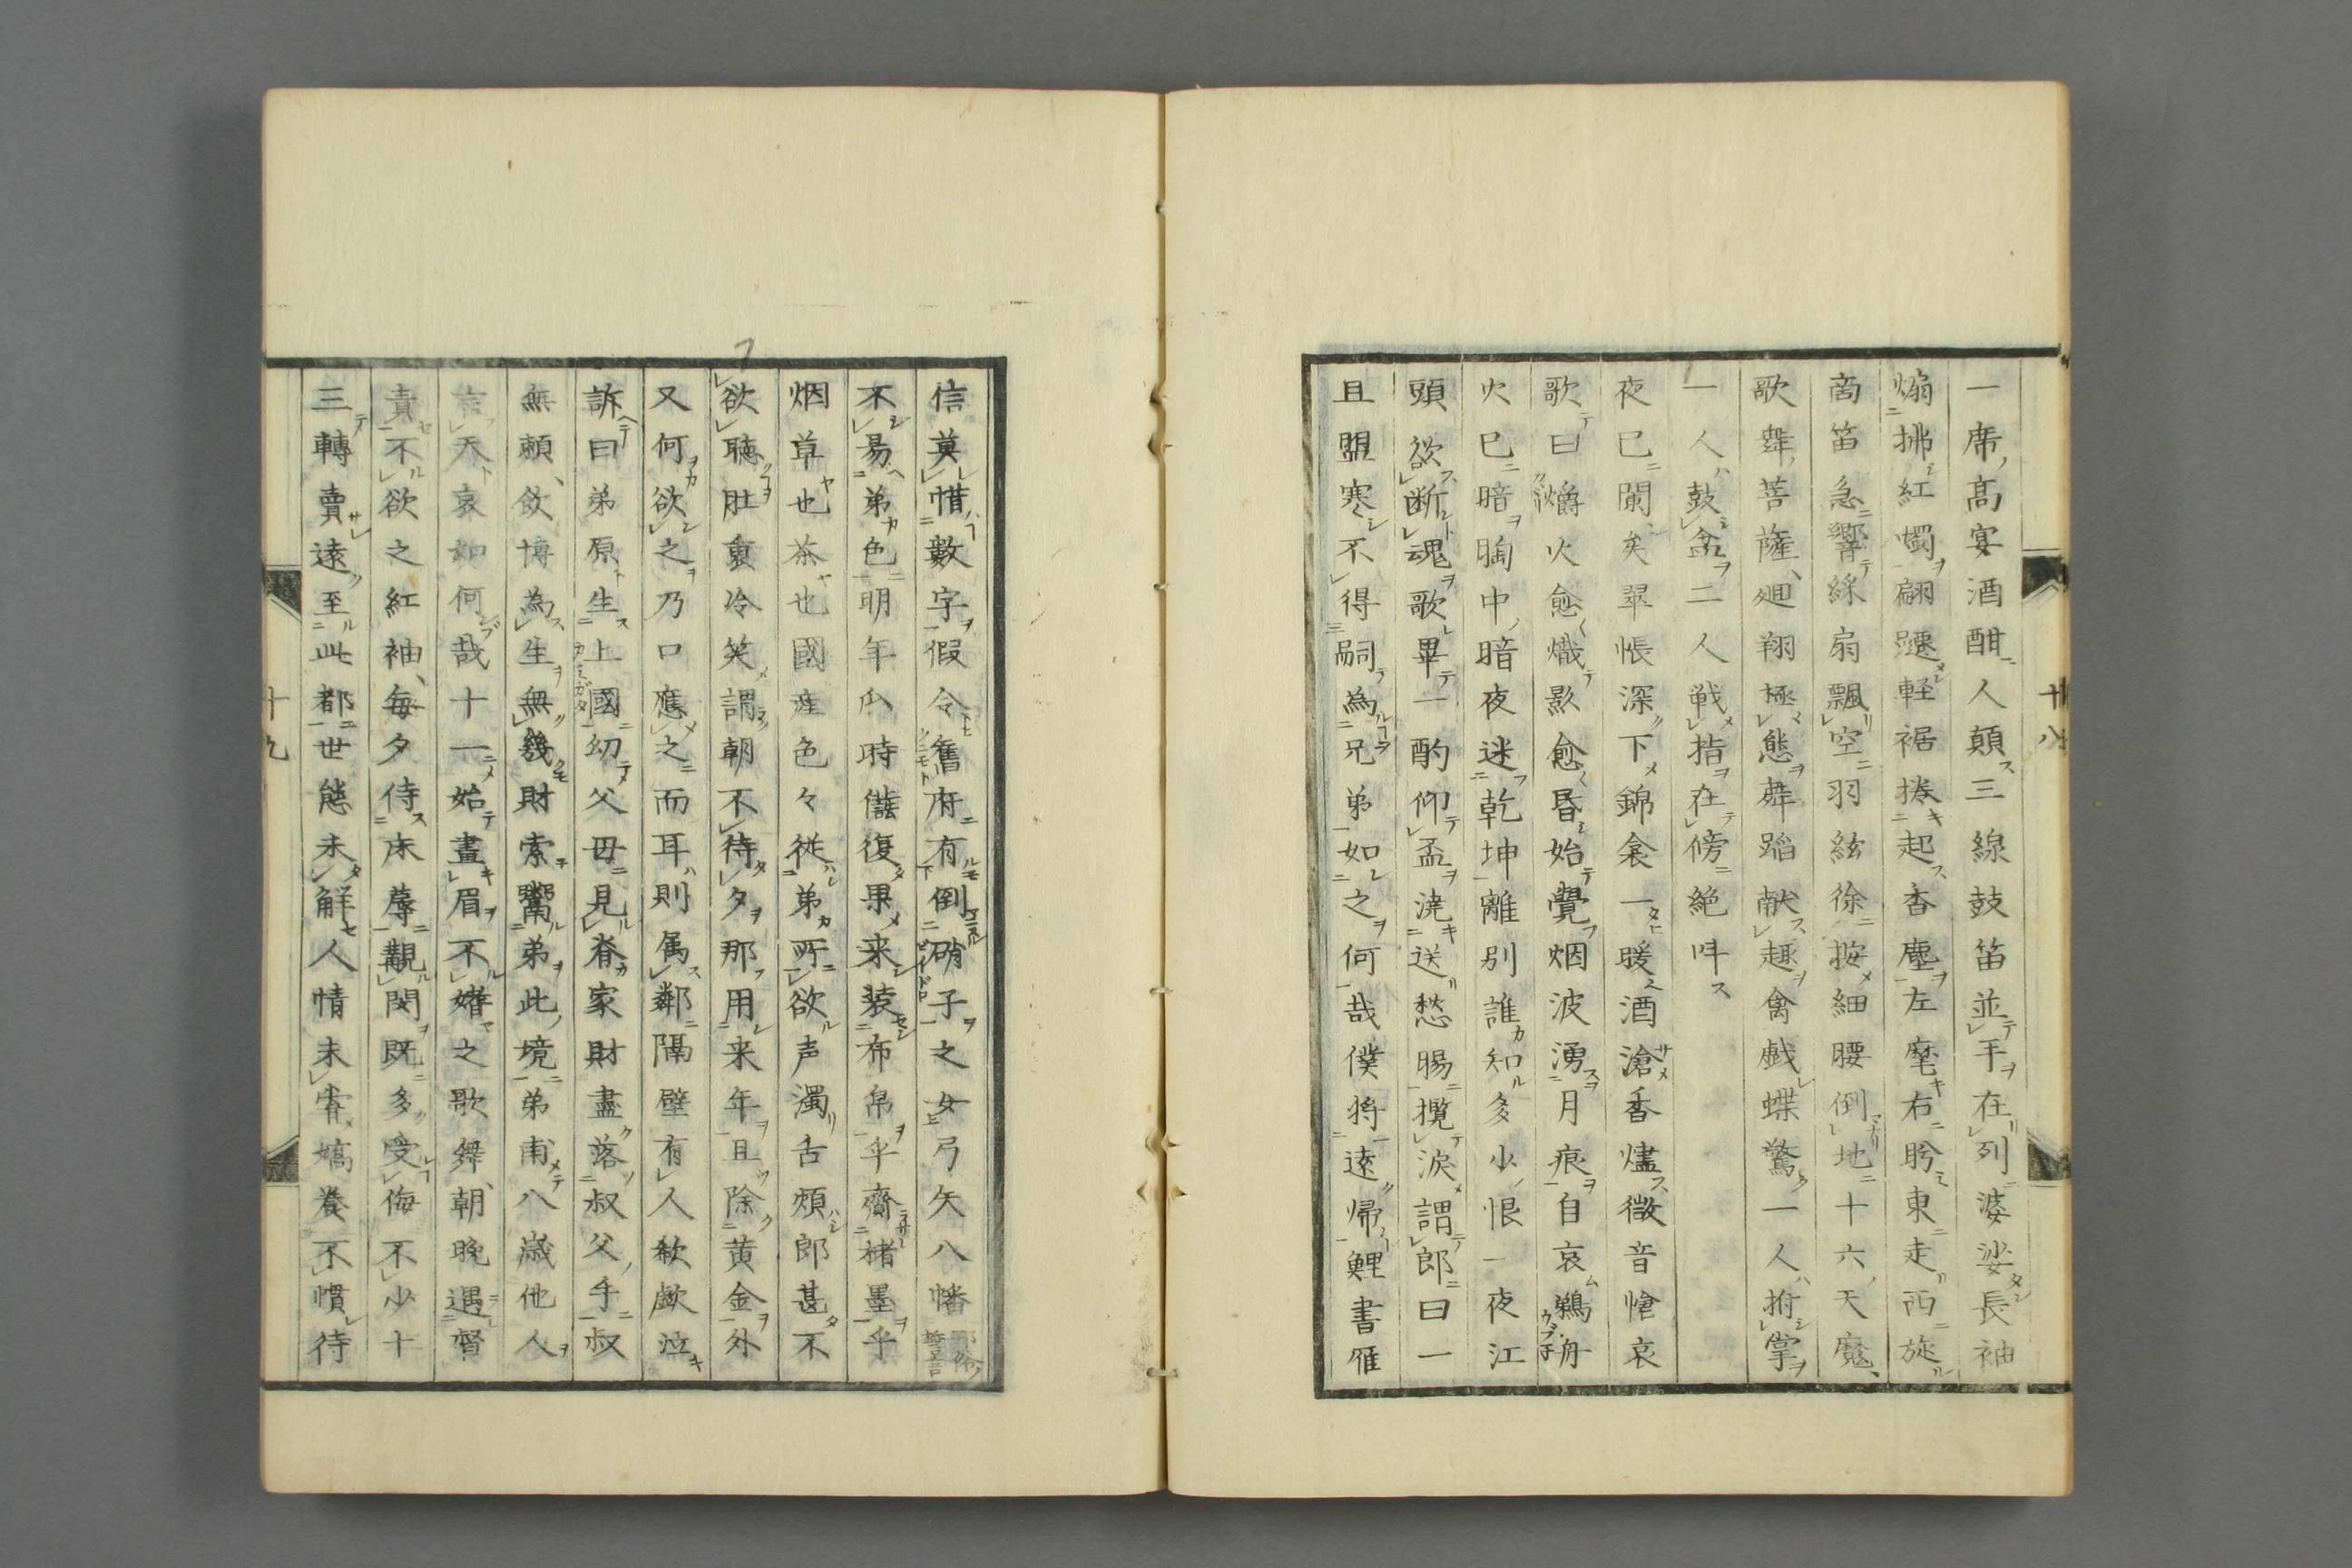 十八
一席高宴酒酣人顛三線鼓笛並手在列婆娑長袖
煽拂紅燭翩躚軽裾捲起香塵左麾右眄東走西旋
啇笛急響綵扇飄空羽絃徐按細腰倒地十六天魔
歌舞菩薩廻翔極態舞蹈献趣禽戯蝶驚一人拊掌
一人鼓盆二人戦指在傍絶叫
夜已闌矣翠帳深下錦衾一暖酒滄香燼微音愴哀
歌曰爝火愈熾影愈昏始覺烟波湧月痕自哀鵜舟
火已暗胸中暗夜迷乾坤離別誰知多少恨一夜江
頭欲断魂歌畢一酌仰盃澆送愁腸攬涙謂郎曰一
且盟寒不得嗣為兄弟如之何哉僕将遠帰鯉書雁
信莫惜數字假令舊府有倒硝子之女弓矢八幡
不易弟色明年瓜時讎復果来装布帛伞齎楮墨乎
烟草也茶也國産色々從弟所欲声濁舌煩郎甚不
欲聴肚裏冷笑謂朝不待夕那用来年且除黄金外
又何欲之乃口應之而耳則属鄰隔壁有人欷歔泣
訴曰弟原生上國幼父母見脊家財盡落叔父手叔
無頼飲博為生無幾財索鬻弟此境弟甫八歳他人
言天哀如何哉十一始畫眉不嬌之歌舞朝晩遇督
責不欲之紅袖毎夕侍床蓐觀閔既多受侮不少十
三轉賣遠至此都世態未解人情未甞嬌養不慣待
十九